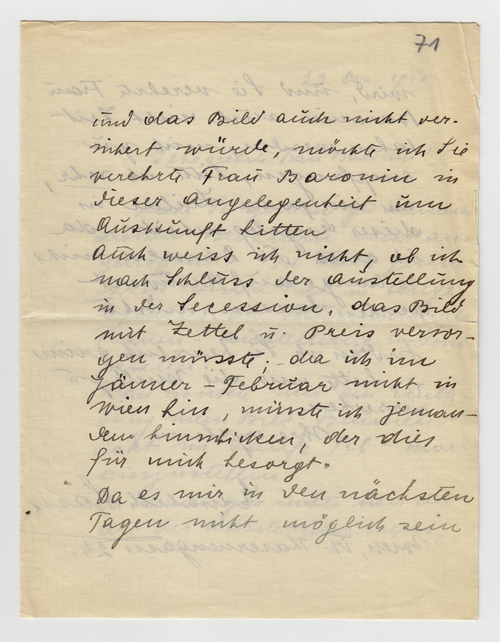 71
und das Bild auch nicht ver-
sichert würde, möchte ich Sie
verehrte Frau Baronin in
dieser Angelegenheit um
Auskunft bitten
Auch weiss ich nicht, ob ich
nach Schluss der Austellung
in der Secession, das Bild
mit Zettel u. Preis versor-
gen müsste; da ich im
Jänner - Februar nicht in
Wien bin, müsste ich jeman-
den hinschicken, der dies
für mich besorgt.
Da es mir in den nächsten
Tagen nicht möglich sein